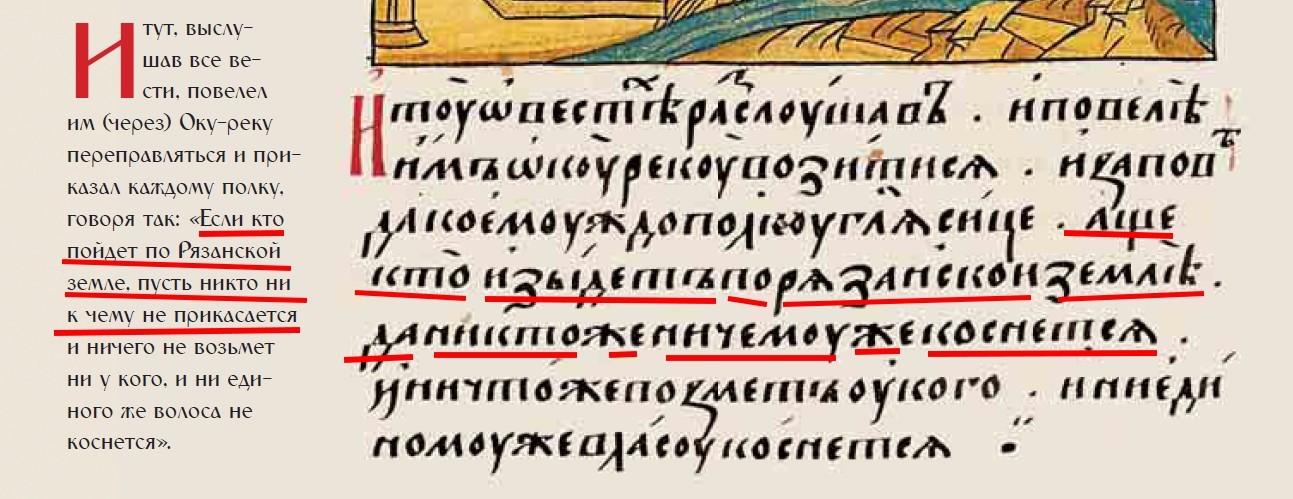 И тут, выслу-
шав все ве-
сти, повелел
им (через) Оку-реку
переправляться и при-
казал каждому полку,
говоря так: «Если кто
пойдет по Рязанской
земле, пусть никто ни
к чему не прикасается
и ничего не возьмет
ни у кого, и ни еди-
ного же волоса не
коснется».
И тоу ѡ вестїѣ раслоушавъ . и повелѣ
имъ ѡкоу рекоу возитися . и заповѣ
да коемоуждо полкоу гл҃ѧ сице . аще
кто изыдетъ по рѧзанскои землѣ .
да никтоже ничемоуже коснетсѧ .
и ничтоже возметъ оу кого . и ни еди
номоуже власоу коснетсѧ